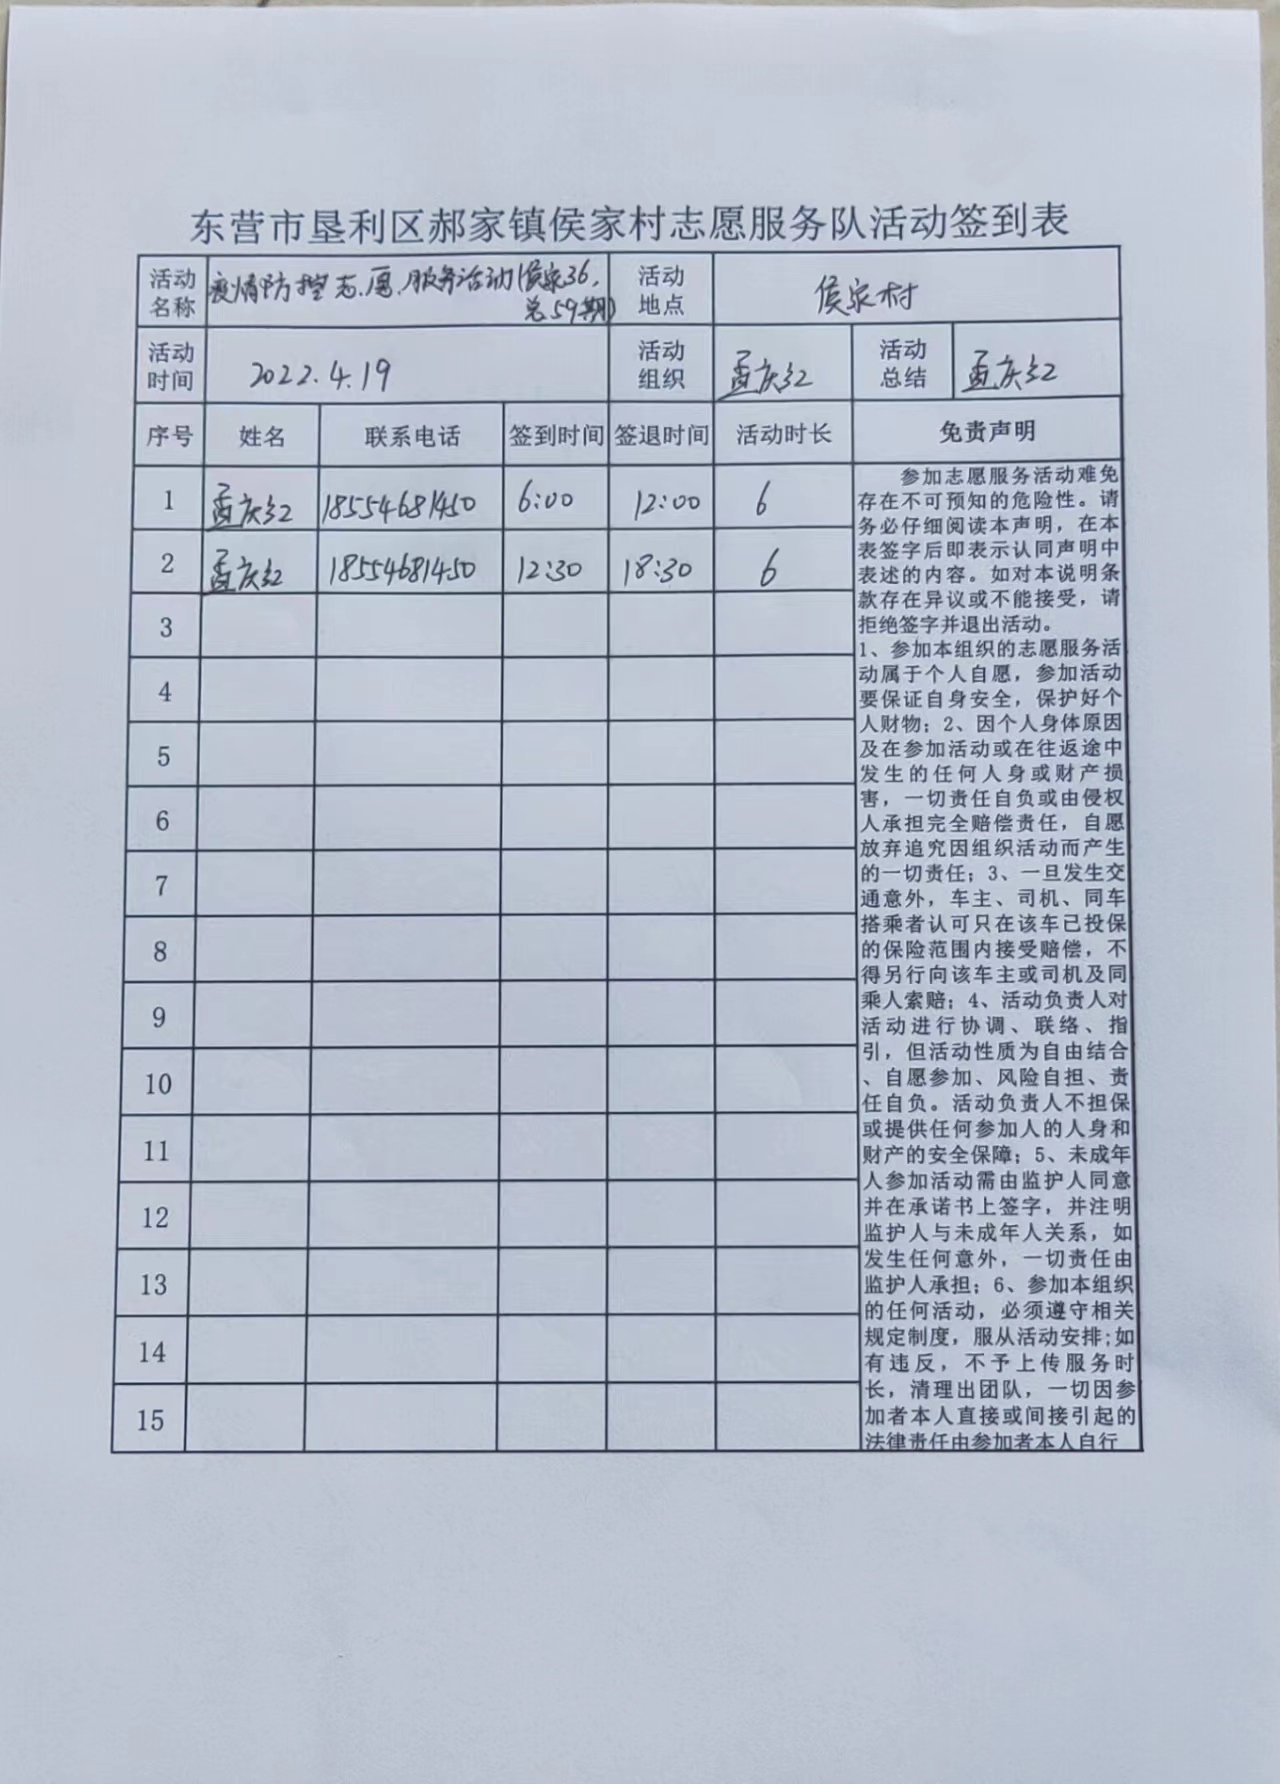 东营市垦利区郝家镇侯家村志愿服务队活动签到表
活动名称 疫情防控志愿服务活动(侯家36,总59期) 活动地点 侯家村
活动时间 2022.4.19 活动组织 孟庆红 活动总结 孟庆红
序号 姓名 联系电话 签到时间 签退时间 活动时长 免责声明
1 孟庆红 18554681450 6:00 12:00 6
2 孟庆红 18554681450 12:30 18:30 6
3
4
5
6
7
8
9
10
11
12
13
14
15
参加志愿服务活动难免
存在不可预知的危险性。请
务必仔细阅读本声明，在本
表签字后即表示认同声明中
表述的内容。如对本说明条
款存在异议或不能接受，请
拒绝签字并退出活动。
1、参加本组织的志愿服务活
动属于个人自愿，参加活动
要保证自身安全，保护好个
人财物；2、因个人身体原因
及在参加活动或在往返途中
发生的任何人身或财产损
害，一切责任自负或由侵权
人承担完全赔偿责任，自愿
放弃追究因组织活动而产生
的一切责任；3、一旦发生交
通意外，车主、司机、同车
搭乘者认可只在该车已投保
的保险范围内接受赔偿，不
得另行向该车主或司机及同
乘人索赔；4、活动负责人对
活动进行协调、联络、指
引，但活动性质为自由结合
、自愿参加、风险自担、责
任自负。活动负责人不担保
或提供任何参加人的人身和
财产的安全保障；5、未成年
人参加活动需由监护人同意
并在承诺书上签字，并注明
监护人与未成年人关系，如
发生任何意外，一切责任由
监护人承担；6、参加本组织
的任何活动，必须遵守相关
规定制度，服从活动安排;如
有违反，不予上传服务时
长，清理出团队，一切因参
加者本人直接或间接引起的
法律责任由参加者本人自行